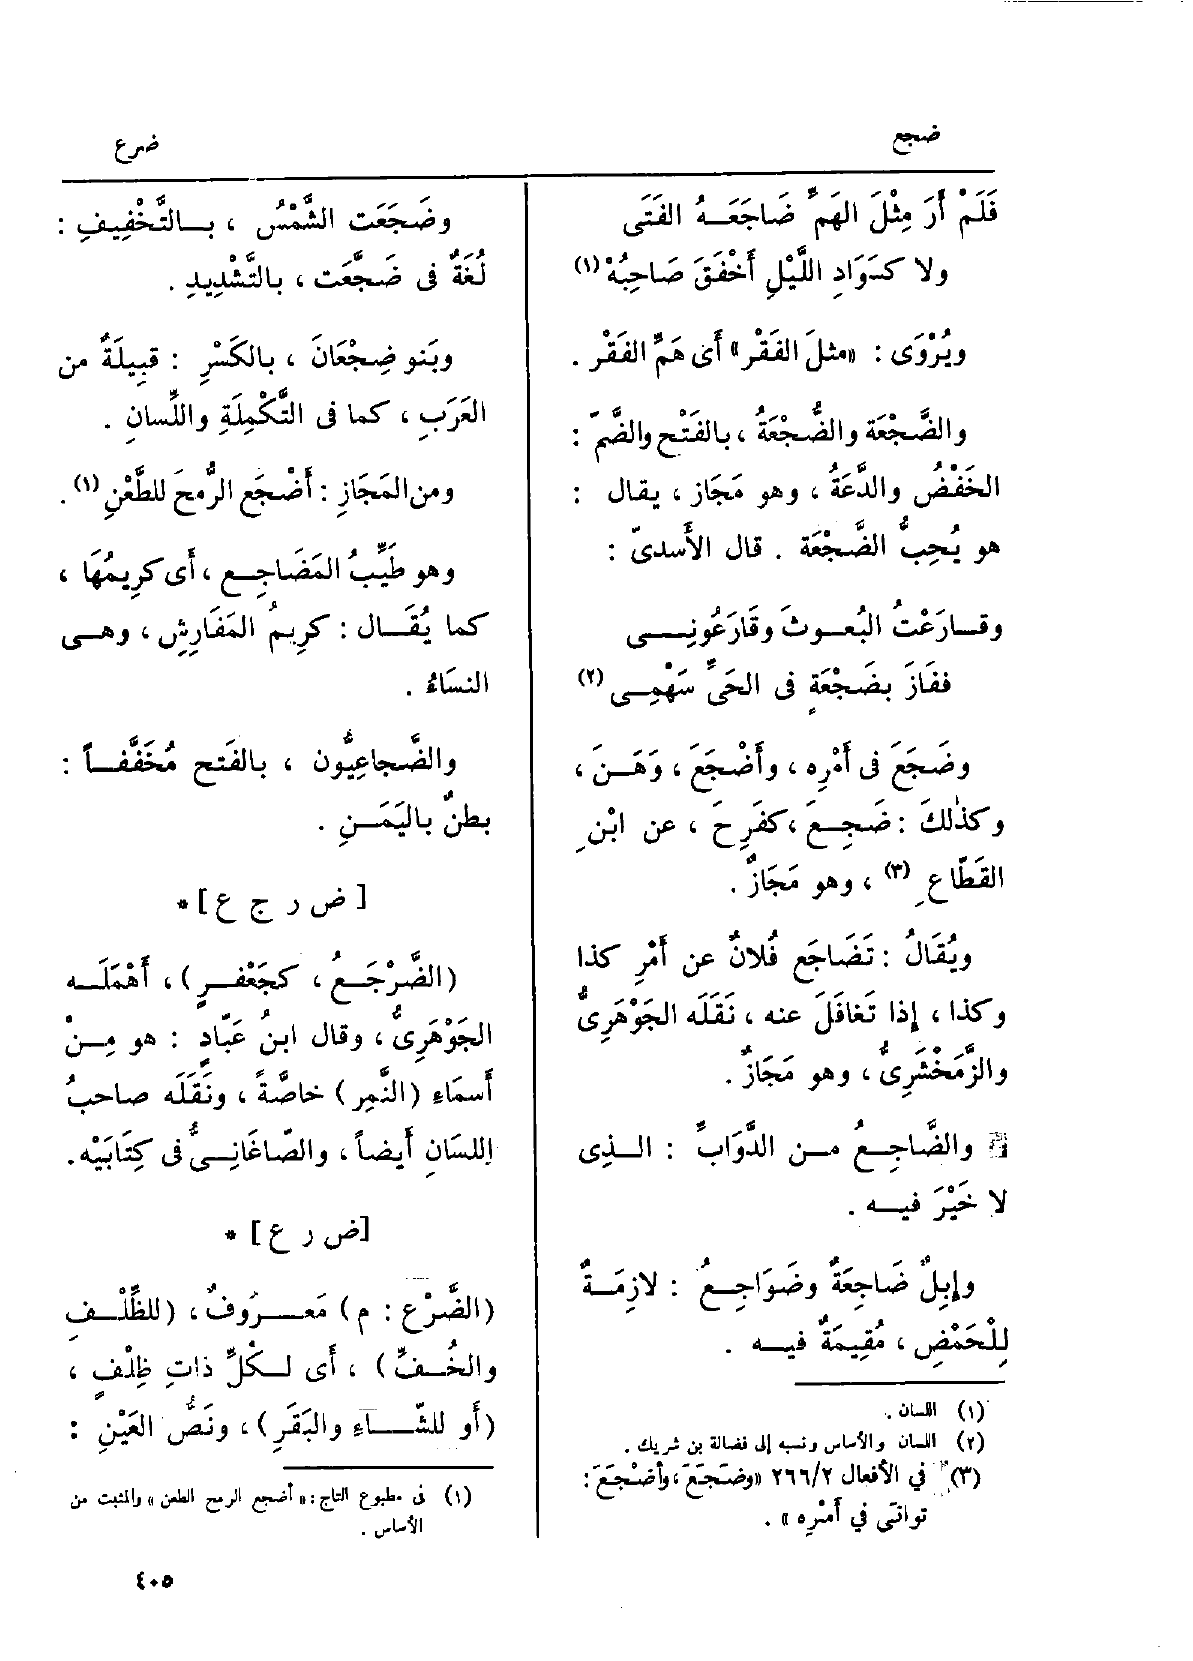 ضجع
ضرع
فَلَمْ أَرَ مِثْلَ الهَمِّ ضَاجَعَــهُ الفَتَى
ولا كسَوَادِ اللَّيْلِ أَخْفَقَ صَاحِبُهْ (١)
ويُرْوَى : «مثلَ الفَقْر» أَى هَمِّ الفَقْر .
والضَّجْعَة والضُّجْعَةُ ، بالفَتْح والضَّمّ :
الخَفْضُ والدَّعَةُ ، وهو مَجَاز ، يقال :
هو يُحِبُّ الضَّجْعَة . قال الأَسدىّ :
وقــارَعْتُ البُعــوثَ وقَارَعُونِــى
ففَازَ بضَجْعَةٍ فى الحَىِّ سَهْمِــى (٢)
وضَجَعَ فى أَمْرِه ، وأَضْجَعَ ، وَهَــنَ ،
وكذٰلكَ : ضَجِــعَ ، كفَرِحَ ، عن ابْنِ
القَطّاعِ (٣) ، وهو مَجَازٌ .
ويُقَالُ : تَضَاجَع فُلانٌ عن أَمْرِ كذا
وكذا ، إِذا تَغافَلَ عنه ، نَقَلَه الجَوْهَرِىُّ
والزَّمَخْشَرِىُّ ، وهو مَجَازٌ .
والضَّاجِــعُ مــن الدَّوَابِّ : الــذِى
لا خَيْرَ فيــه .
وإِبِلٌ ضَاجِعَةٌ وضَوَاجِــعُ : لازِمَــةٌ
لِلْحَمْضِ ، مُقِيمَةٌ فيــه .
(١) اللسان .
(٢) اللسان والأساس ونسبه إلى فضالة بن شريك .
(٣) في الأفعال ٢٦٦/٢ «وضَجَعَ ، وأَضْجَعَ :
توانَى في أَمْرِه » .
وضَجَعَت الشَّمْسُ ، بــالتَّخْفِيفِ :
لُغَةٌ فى ضَجَّعَت ، بالتَّشْدِيدِ .
وبَنو ضِجْعَانَ ، بالكَسْرِ : قبِيلَةٌ من
العَرَبِ ، كما فى التَّكْمِلَةِ واللِّسانِ .
ومن المَجَازِ : أَضْجَع الرُّمحَ للطَّعْنِ (١) .
وهو طَيِّبُ المَضَاجِــع ، أَى كرِيمُهَا ،
كما يُقَــال : كرِيمُ المَفَارِشِ ، وهــى
النسَاءُ .
والضَّجاعِيُّون ، بالفَتح مُخَفَّفــاً :
بطنٌ باليَمَــنِ .
[ ض ر ج ع ] *
(الضَّرْجَــعُ ، كجَعْفَــرٍ) ، أَهْمَلَــه
الجَوْهَرِىُّ ، وقال ابنُ عَبّادٍ : هو مِــنْ
أَسمَاءِ (النَّمِرِ) خاصَّةً ، ونَقَلَه صاحبُ
اللسَانِ أَيضاً ، والصّاغَانِــىُّ فى كِتَابَيْه .
[ض ر ع ] *
(الضَّرْع : م) مَعــرُوفٌ ، (للظِّلْــفِ
والخُــفِّ) ، أَى لــكُلِّ ذاتِ ظِلْفٍ ،
(أَو للشّــاءِ والبَقَرِ) ، ونَصُّ العَيْنِ :
(١) فى مطبوع التاج : « أضجع الرمح الطعن » والمثبت من
الأساس .
٤٠٥